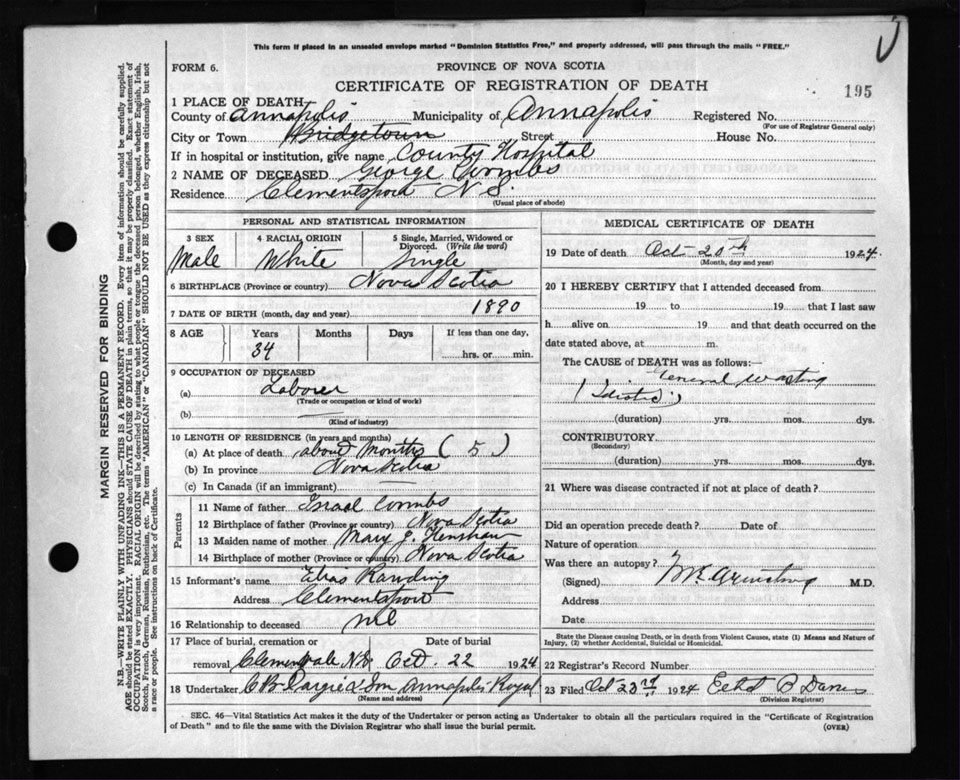 This form if placed in an unsealed envelope marked "Dominion Statistics Free," and properly addressed, will pass through the mails "FREE."
FORM 6.
PROVINCE OF NOVA SCOTIA
CERTIFICATE OF REGISTRATION OF DEATH
195
1 PLACE OF DEATH
County of Annapolis Municipality of Annapolis Registered No.
(For use of Registrar General only)
City or Town Bridgetown Street House No.
If in hospital or institution, give name County Hospital
2 NAME OF DECEASED George Coombs
Residence Clementsport N S.
(Usual place of abode)
PERSONAL AND STATISTICAL INFORMATION
3 SEX 4 RACIAL ORIGIN 5 Single, Married, Widowed or Divorced. (Write the word)
Male White Single
6 BIRTHPLACE (Province or country) Nova Scotia
7 DATE OF BIRTH (month, day and year) 1890
8 AGE Years Months Days If less than one day,
34 hrs. or min.
9 OCCUPATION OF DECEASED
(a) Laborer
(Trade or occupation or kind of work)
(b)
(Kind of industry)
10 LENGTH OF RESIDENCE (in years and months)
(a) At place of death about Months (5)
(b) In province Nova Scotia
(c) In Canada (if an immigrant)
Parents
11 Name of father Israel Coombs
12 Birthplace of father (Province or country) Nova Scotia
13 Maiden name of mother Mary J. Henshaw
14 Birthplace of mother (Province or country) Nova Scotia
15 Informant's name Elias
Address Clementsport
16 Relationship to deceased nil
17 Place of burial, cremation or removal Date of burial
Clementsvale N.S. Oct. 22 1924
18 Undertaker C B Dargie & Son Annapolis Royal
(Name and address)
MEDICAL CERTIFICATE OF DEATH
19 Date of death Oct 20th 1924.
(Month, day and year)
20 I HEREBY CERTIFY that I attended deceased from
19 to 19 that I last saw
h alive on 19 and that death occurred on the
date stated above, at m.
The CAUSE of DEATH was as follows:—
General wasting
(duration) yrs. mos. dys.
CONTRIBUTORY
(Secondary)
(duration) yrs. mos. dys.
21 Where was disease contracted if not at place of death?
Did an operation precede death? Date of
Nature of operation
Was there an autopsy?
(Signed) Armstrong M.D.
Address
Date
State the Disease causing Death, or in death from Violent Causes, state (1) Means and Nature of Injury, (2) whether Accidental, Suicidal or Homicidal.
22 Registrar's Record Number
23 Filed Oct 23rd 1924
(Division Registrar)
SEC. 46—Vital Statistics Act makes it the duty of the Undertaker or person acting as Undertaker to obtain all the particulars required in the "Certificate of Registration
of Death" and to file the same with the Division Registrar who shall issue the burial permit. (OVER)
MARGIN RESERVED FOR BINDING
N.B.—WRITE PLAINLY WITH UNFADING INK—THIS IS A PERMANENT RECORD. Every item of information should be carefully supplied.
AGE should be stated EXACTLY. PHYSICIANS should STATE CAUSE OF DEATH in plain terms, so that it may be properly classified. Exact statement of
OCCUPATION is very important. RACIAL ORIGIN will be described by stating to what people or tongue the deceased person belonged, whether English, Irish,
Scotch, French, German, Russian, Ruthenian, etc. The terms "AMERICAN" or "CANADIAN" SHOULD NOT BE USED as they express citizenship but not
a race or people. See instructions on back of Certificate.